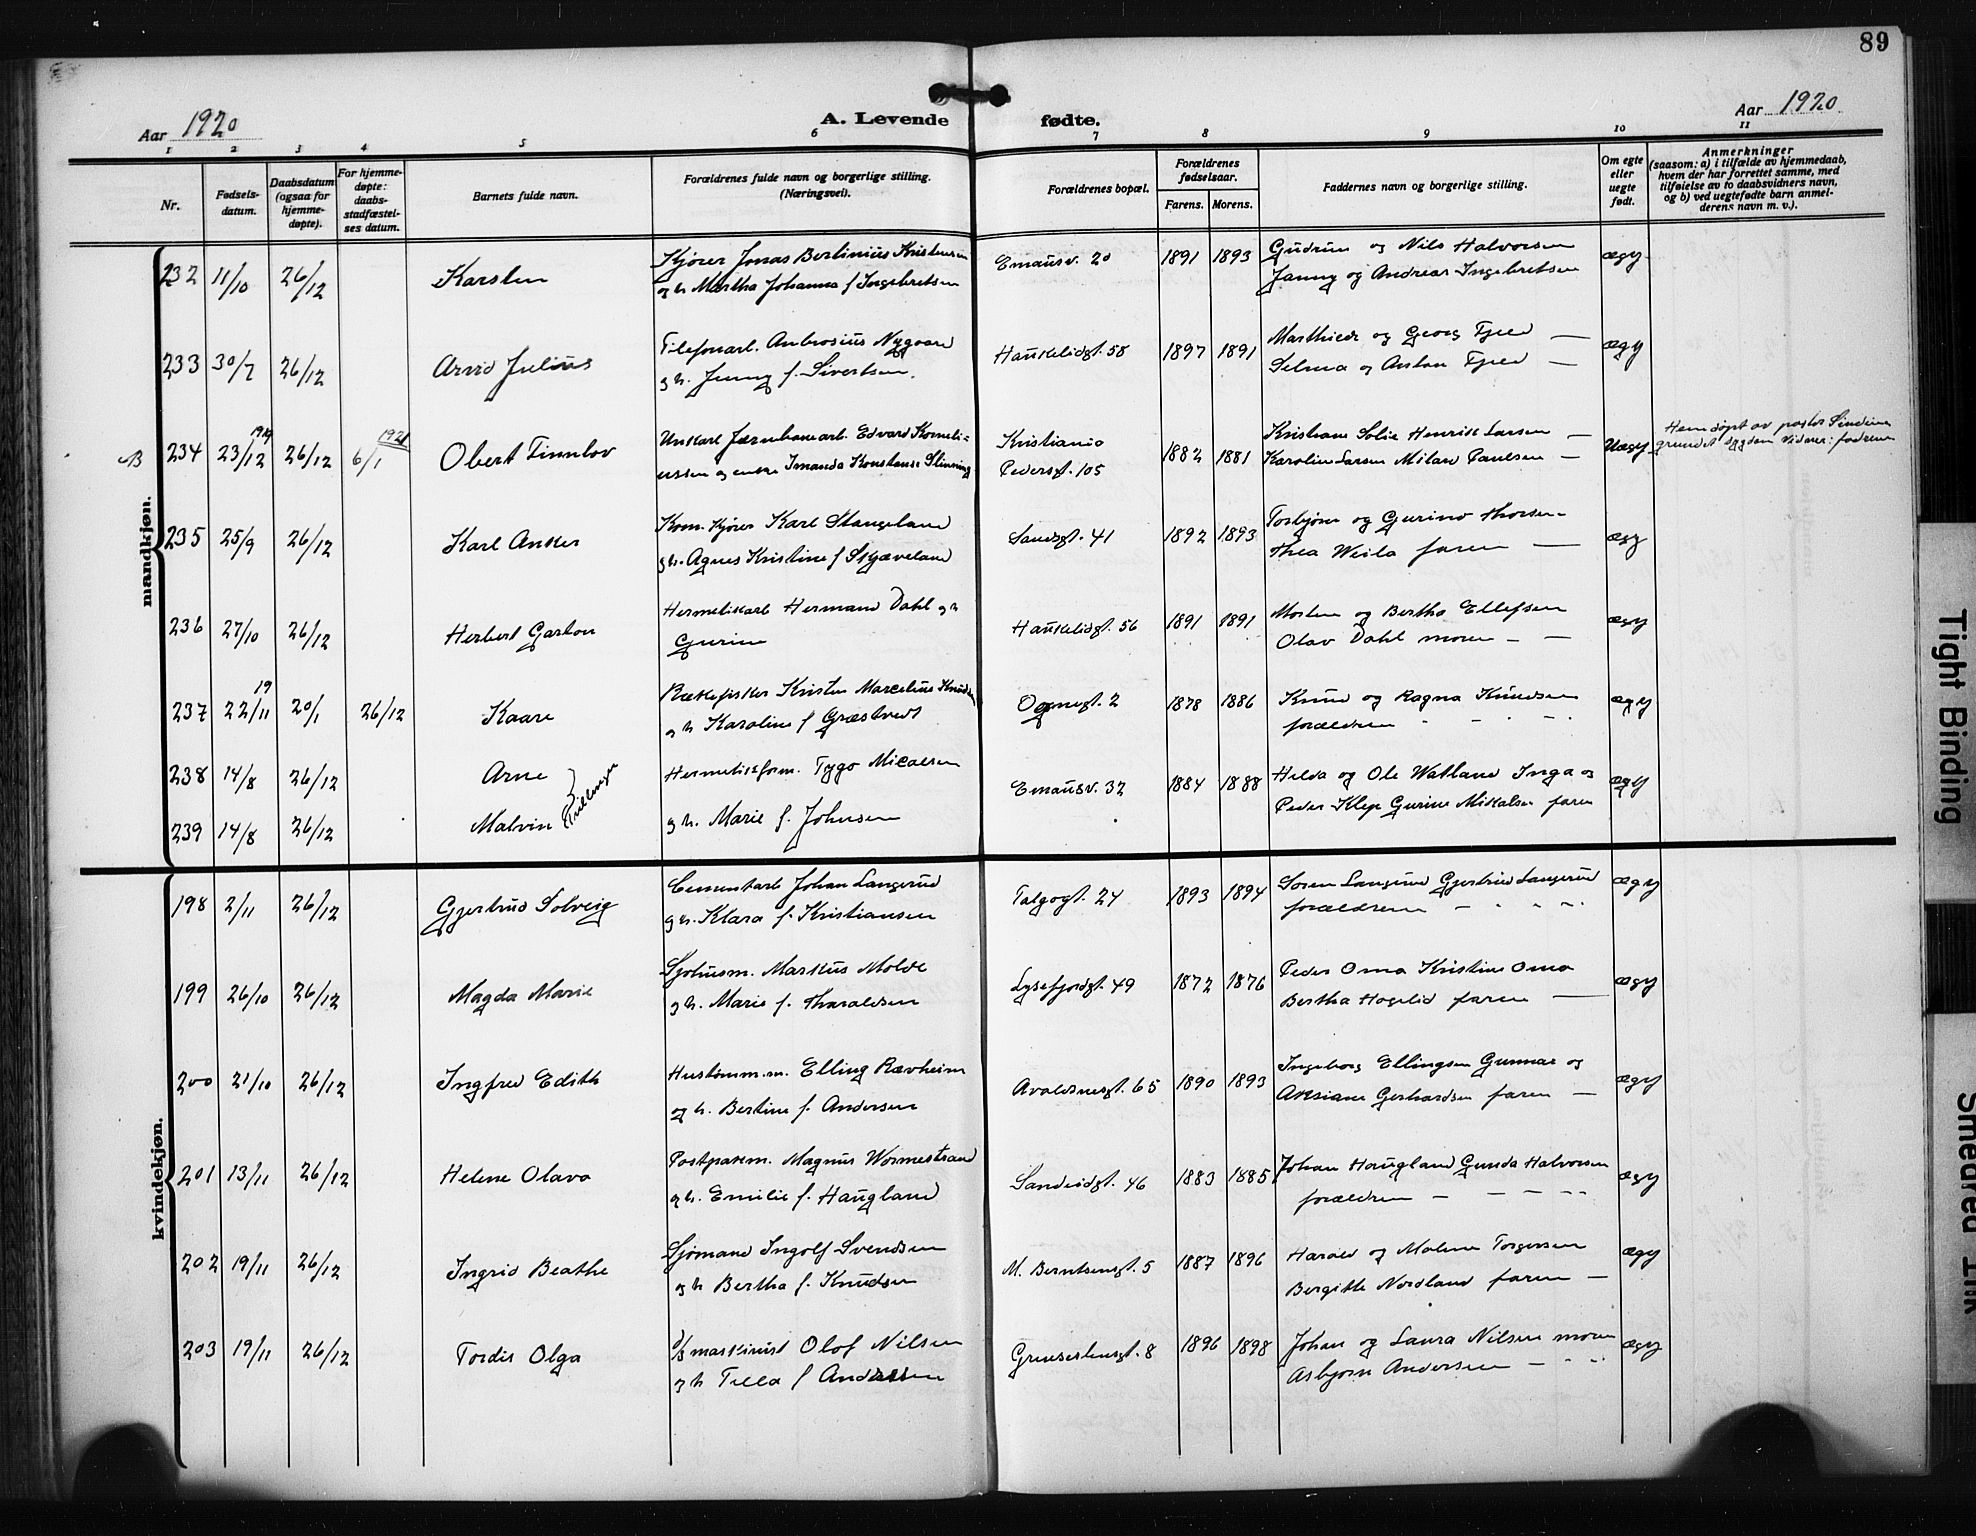 89
Aar 1920
A. Levende fødte.
Aar 1920
1 2 3 4 5 6 7 8 9 10 11
Nr.
Fødsels-
datum.
Daabsdatum
(ogsaa for
hjemme-
døpte).
For hjemme-
døpte:
daabs-
stadfæstel-
ses datum.
Barnets fulde navn.
Forældrenes fulde navn og borgerlige stilling.
(Næringsvei).
Forældrenes bopæl.
Forældrenes
fødselsaar.
Farens. Morens.
Faddernes navn og borgerlige stilling.
Om egte
eller
uegte
født.
Anmerkninger
(saasom: a) i tilfælde av hjemmedaab,
hvem der har forrettet samme, med
tilføielse av to daabsvidners navn,
og b) ved uegtefødte barn anmel-
derens navn m. v.).
mandkjøn.
232 11/10 26/12 Karsten
Kjører Jonas Bertinius Kristensen
og h. Martha Johanna f Ingebretsen
Emausv. 20 1891 1893
Gudrun og Nils Halvorsen
Janny og Andreas Ingebretsen
ægt
233 30/7 26/12 Arvid Julius
Telefonarb. Ambrosius Nygaard
g h. Jenny f. Sivertsen.
Haukelidgt. 58 1897 1891
Marthiede og Georg Tjeld —
Selma og Anton Tjeld —
ægt
B 234 23/12 1919 26/12 6/1 1921 Obert Finnlov
Unkarl Jærnbanearb. Edvard Korneli-
ussen og enke Imanda Konstanse Slinning
Kristiania
Pedersgt. 105 1882 1881
Kristiane Solie Henrik Larsen —
Karoline Larsen Milard Paulsen —
Uægt
Hemdöpt av pastor
grundet sygdom vidner: fadrene
235 25/9 26/12 Karl Anker
Kom. kjører Karl Stangeland
g h. Agnes Kristine f Skjæveland
Sandsgt. 41 1892 1893
Torbjörn og Gurine Thorsen -
Thea Weila faren —
ægt
236 27/10 26/12 Herbert Garton
Hermetikarb Hermand Dahl g h
Gurine
Haukelidgt. 56 1891 1891
Morten og Bertha Ellefsen
Olav Dahl moren — —
ægt
237 22/11 19 20/1 26/12 Kaare
Rækefisker Kristen Marcelius Knudsen
g h Karoline f Græstvedt
Ognegt. 2 1878 1886
Knud og Ragna Knudsen
forældren - - - -
ægt
238 14/8 26/12 Arne
239 14/8 26/12 Malvin
} Tvillinger
Hermetikform. Tygo Micalsen
g h. Marie f. Johnsen
Emausv. 32 1884 1888
Helda og Ole Watland Inga og
Peder Klep Gurine Mikalsen faren
ægt
kvindekjøn.
198 2/11 26/12 Gjertrud Solveig
Cementarb Johan Langerud
g h. Klara f. Kristiansen
Talgogt. 24 1893 1894
Soren Langerud Gjertrud Langerud
forældrene — - - -
ægt
199 26/10 26/12 Magda Marie
Sjohusm. Markus Molde
g h. Marie f. Tharaldsen
Lysefjordgt. 49 1872 1876
Peder Oma Kristine Oma
Bertha Hogelid faren —
ægt
200 21/10 26/12 Ingfred Edith
Hustömm.m. Elling Rævheim
og h. Bertine f. Andersen
Avaldsnesgt. 65 1890 1893
Ingeborg Ellingsen Gunnar og
Aksiane Gerhardsen faren —
ægt
201 13/11 26/12 Helene Olava
Postpakm. Magnus Wormestrand
g h. Emilie f. Haugland
Sandeidgt. 46 1883 1885
Johan Haugland Gunda Halvorsen
forældren — — — - -
ægt
202 19/11 26/12 Ingrid Beathe
Sjömand Ingolf Svendsen
og h Bertha f. Knudsen
M. Berntsensgt. 5 1887 1896
Harald og Malena Torgersen
Bergitte Nordland faren —
ægt
203 19/11 26/12 Tordis Olga
d/s maskinist Olof Nilsen
g h Tella f Andersen
1896 1898
Johan og Laura Nilsen moren
Asbjorn Andersen — - -
ægt
Tight Binding
Smeared Ink